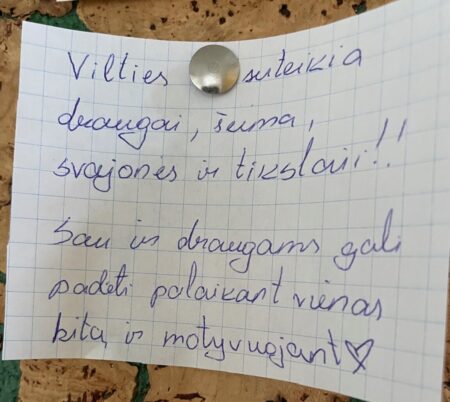 Vilties suteikia
draugai, šeima,
svajonės ir tikslai!!
Sau ir draugams gali
padėti palaikant vienas
kitą ir motyvuojant♡